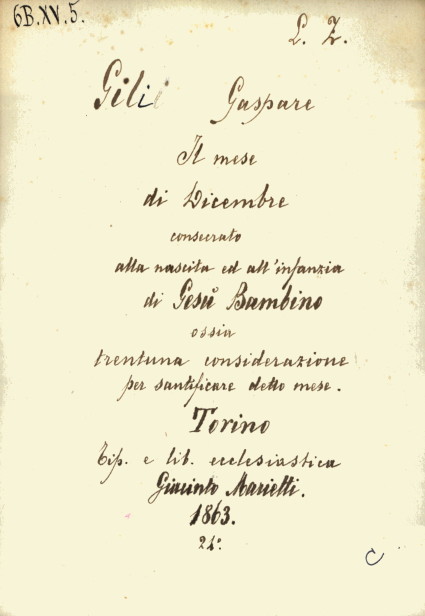 6B.XV.5.
L. Z.
Gili Gaspare
Il mese
di Dicembre
consecrato
alla nascita ed all'infanzia
di Gesù Bambino
ossia
trentuna considerazione
per santificare detto mese.
Torino
Tip. e lib. ecclesiastica
Giacinto Marietti.
1863.
24°.
C